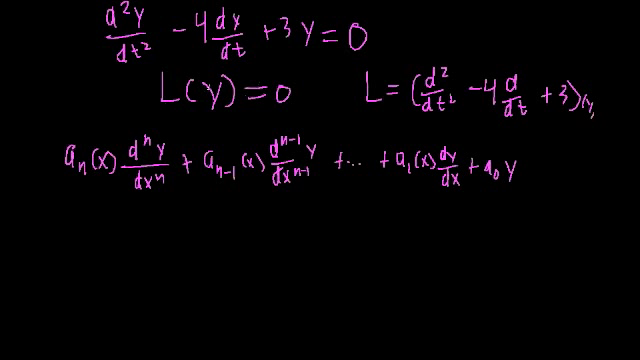 d²y/dt² - 4 dy/dt + 3y = 0
L(y) = 0    L = (d²/dt² - 4 d/dt + 3)(y)
aₙ(x) dⁿy/dxⁿ + aₙ₋₁(x) dⁿ⁻¹y/dxⁿ⁻¹ + ... + a₁(x) dy/dx + a₀y